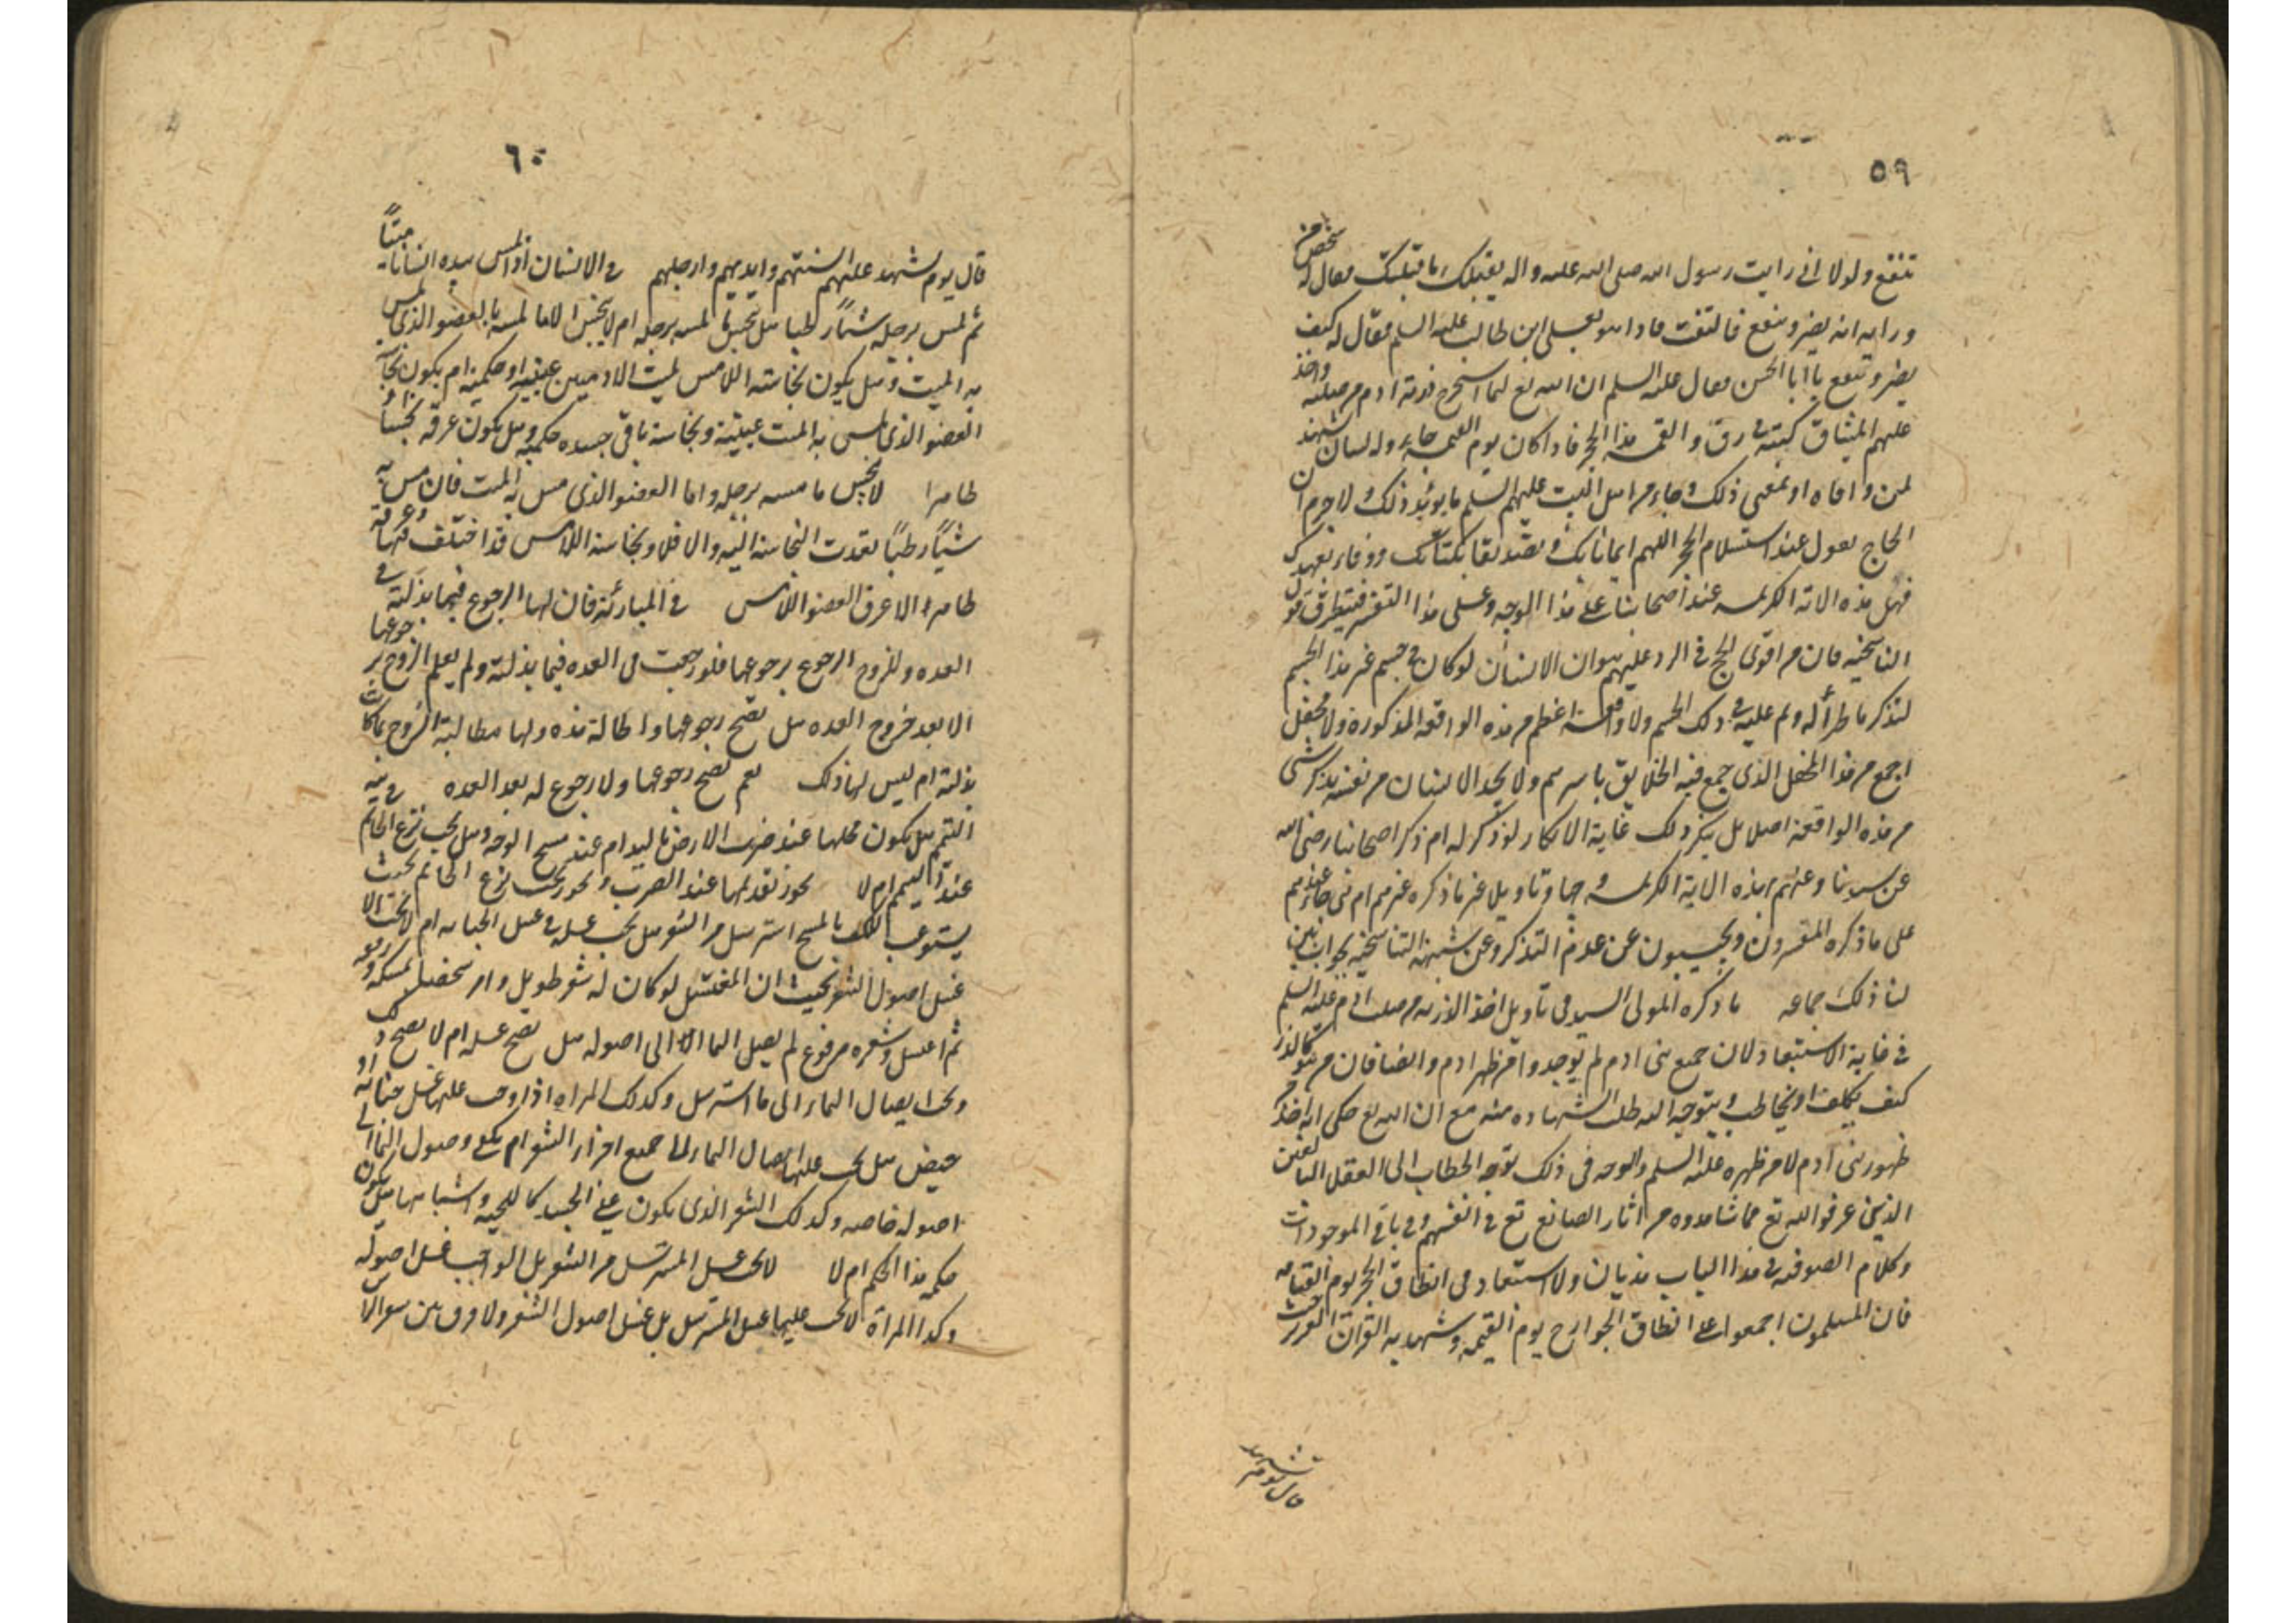 ٥٩
تنفع ولولا انى رايت رسول الله صلى الله عليه واله يقبلك ما قبلتك فقال له شخص من
ورايه انه يضر وينفع فالتفت فاذا هو بعلى ابن طالب عليه السلم فقال له كيف
يضر وينفع يا ابا الحسن فقال عليه السلم ان الله تع لما استخرج ذرية ادم من صلبه واخذ
عليهم الميثاق كتبه فى رق والقمه هذا الحجر فاذا كان يوم القيمه جاء وله لسان يشهد
لمن وافاه او بمعنى ذلك وجاء من اهل البيت عليهم السلم ما يويد ذلك لاجرم ان
الحاج يقول عند استلام الحجر اللهم ايمانا بك وتصديقا بكتابك ووفاء بعهدك
فهل هذه الاية الكريمه عند اصحابنا على هذا الوجه وعلى هذا التفسير فيتطرق قول
التناسخيه فان من اقوى الحجج فى الرد عليهم هو ان الانسان لو كان فى جسم غير هذا الجسم
لتذكر ما طرأ له وتم عليه فى ذلك الجسم ولا واقعة اعظم من هذه الواقعة المذكورة ولا محفل
اجمع من هذا المحفل الذى جمع فيه الخلايق باسرهم ولا يجد الانسان من نفسه يذكر شئ
من هذه الواقعة اصلا بل ينكر ذلك غاية الانكار لو ذكر له ام ذكر اصحابنا رضى الله
عن سيدنا وعنهم لهذه الاية الكريمه وجها وتاويل غير ما ذكره غيرهم ام هى عندهم
على ما ذكره المفسرون ويجيبون عن عدم التذكر وعن شبهة التناسخيه بجواب بين
لنا ذلك جماعه ما ذكره المولى السيد فى تاويل اخذ الذريه من صلب ادم عليه السلم
فى غاية الاستبعاد لان جميع بنى ادم لم يوجدوا من ظهر ادم وايضا فان من هو كالذر
كيف يكلف او يخاطب ويتوجه اليه طلب الشهاده منه مع ان الله تع حكى انه اخذ من
ظهور بنى ادم لا من ظهره عليه السلم والوجه فى ذلك توجه الخطاب الى العقلا البالغين
الذين عرفوا الله تع بما شاهدوه من اثار الصانع تع فى انفسهم وفى باقى الموجودات
وكلام الصوفيه فى هذا الباب هذيان ولا استبعاد فى انطاق الحجر يوم القيامه
فان المسلمون اجمعوا على انطاق الجوارح يوم القيمه وشهد به القران العزيز حيث
قال يوم تشهد
٦٠
قال يوم تشهد عليهم السنتهم وايديهم وارجلهم فى الانسان اذا لمس بيده انسانا ميتاً
ثم لمس برجله شيئاً رطبا هل ينجس ما لمسه برجله ام لا ينجس الا ما لمسه بالعضو الذى لمس
به الميت وهل يكون نجاسته اللامس لميت الادميين عينيه او حكمية ام يكون نجاسة
العضو الذى لمس به الميت عينية ونجاسة باقى جسده حكميه وهل يكون عرقه نجسا او
طاهرا لا ينجس ما مسه برجله واما العضو الذى مس به الميت فان مس به
شيئاً رطباً تعدت النجاسة اليه والا فلا ونجاسة اللامس قد اختلف فيها وعرقه
طاهر الا عرق العضو اللامس فى المبارئة فان لها الرجوع فيما بذلته فى
العده وللزوج الرجوع برجوعها فلو رجعت فى العده فيما بذلته ولم يعلم الزوج برجوعها
الا بعد خروج العده هل يصح رجوعها والحالة هذه ولها مطالبة الزوج بما كانت
بذلته ام ليس لها ذلك نعم يصح رجوعها ولا رجوع له بعد العده فى نية
التيمم هل يكون محلها عند ضرب الارض باليد ام عند مسح الوجه وهل يجب نزع الخاتم
عند التيمم ام لا يجوز تقديمها عند الضرب ويجب نزع الخاتم بحيث
يستوعب الكف بالمسح استرسل من الشعر هل يجب غسله فى غسل الجنابه ام لا يجب الا
غسل اصول الشعر بحيث ان المغتسل لو كان له شعر طويل وامر شخصا يمسكه ورفعه
ثم اغتسل وشعره مرفوع لم يصل الماء الا الى اصوله هل يصح غسله ام لا يصح ذلك
ويجب ايصال الماء الى ما استرسل وكذلك المراه اذا وجب عليها غسل جنابه او
حيض هل يجب عليها ايصال الماء الى جميع اجزاء الشعر ام يكفى وصول الماء الى
اصوله خاصه وكذلك الشعر الذى يكون على الجسد كاللحيه واشباهها هل يكون
حكمه هذا الحكم ام لا لا يجب غسل المسترسل من الشعر بل الواجب غسل اصوله
وكذا المراة لا يجب عليها غسل المسترسل بل غسل اصول الشعر ولا فرق بين شعر الراس